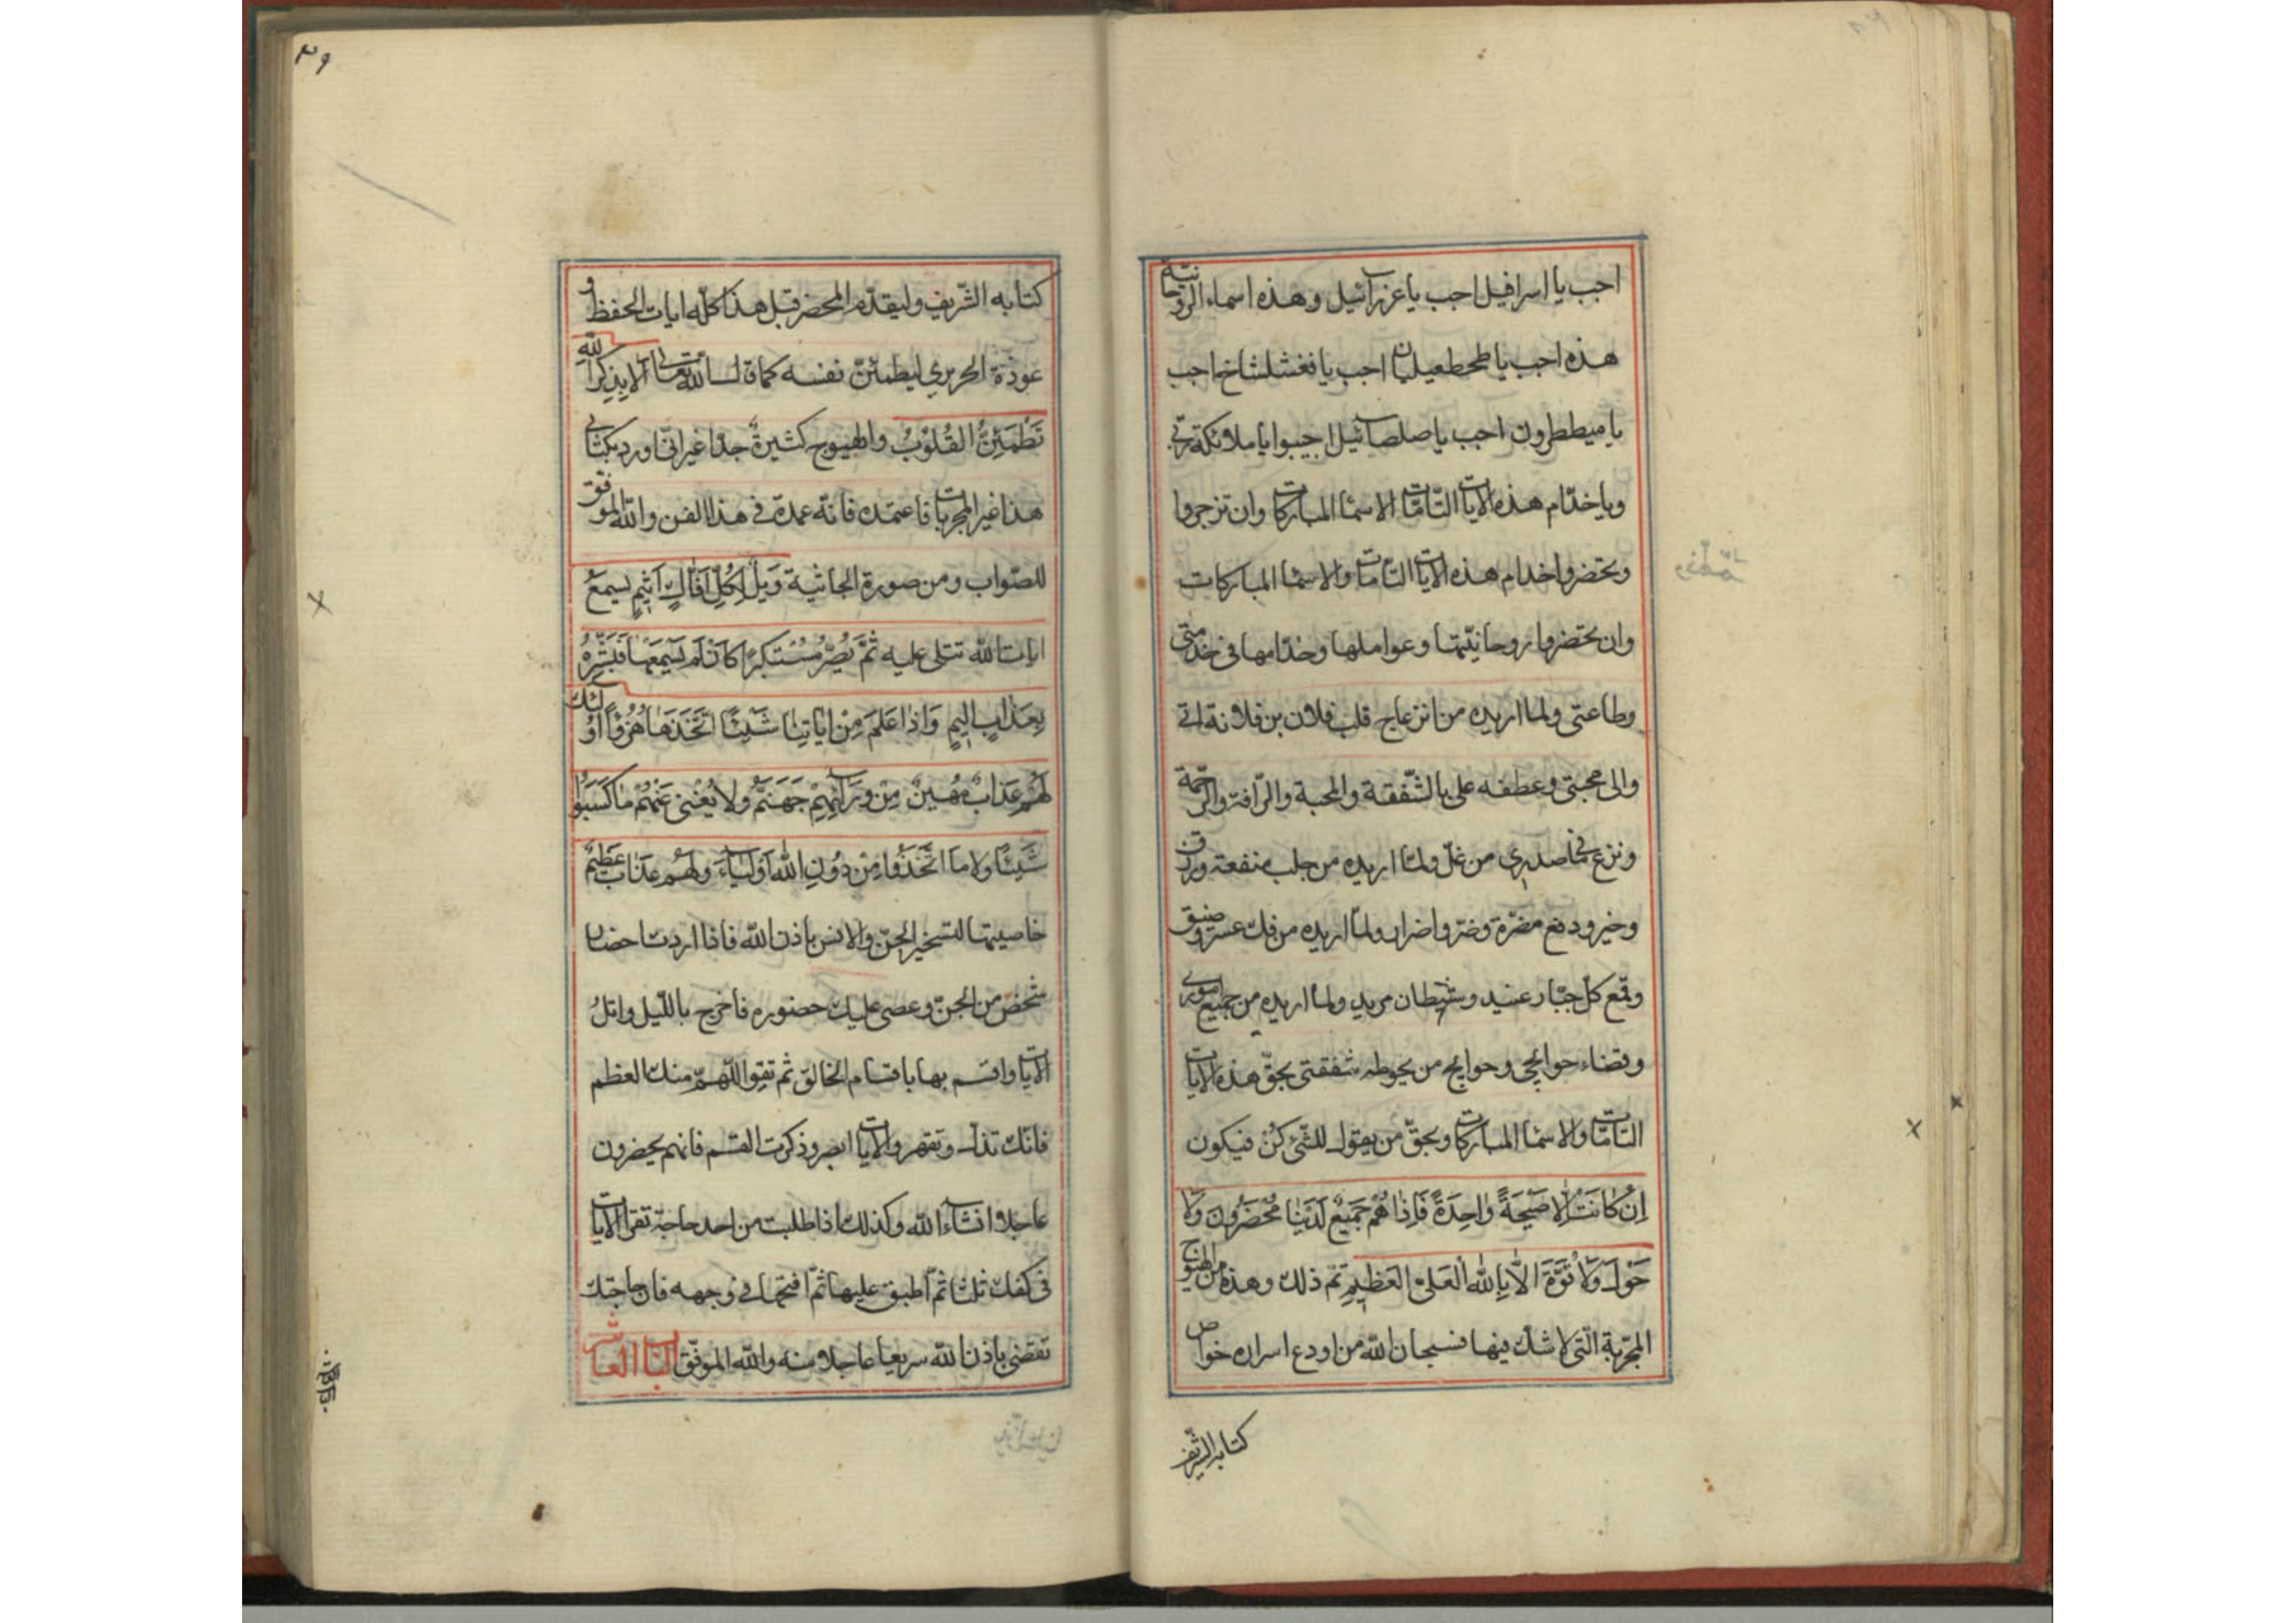 اجب يا اسرافيل اجب يا عزرائيل وهذه اسماء الروحانية
هذه اجب يا طحطعيلان اجب يا فغشلشاخ اجب
يا ميططرون اجب يا صلصائيل اجيبوا يا ملائكة ربي
ويا خدّام هذه الايات التامّات الاسما المباركات وان تزجروا
وتحضروا خدام هذه الايات التامات والاسما المباركات
وان تحضروا روحانيّتها وعواملها وخدّامها في خدمتي
وطاعتي ولما اريده من انزعاج قلب فلان بن فلانة اليّ
والى محبتي وعطفه علي بالشّفقة والمحبة والرّافة والرّحمة
ونزع ما في صدري من غلّ ولما اريده من جلب منفعة ورزق
وخير ودفع مضرّة وضرّ واضرار ولما اريده من فك عسر وضيق
وقمع كل جبّار عنيد وشيطان مريد ولما اريده من جميع اموري
وقضاء حوائجي وحوايج من يحوطه شفقتي بحقّ هذه الايات
التامّات والاسما المباركات وبحقّ من يقول للشّئ كن فيكون
اِنْ كَانَتْ اِلا صَيْحَةً وَاحِدَةً فَاِذَا هُمْ جَمِيعٌ لَدَيْنَا مُحْضَرُونَ وَلَا
حَوْلَ وَلَا قُوَّةَ اِلَّا بِاللهِ الْعَلِيّ الْعَظِيمِ تم ذلك وهذه من الهيوج
المجرّبة التي لا شك فيها فسبحان اللّه من اودع اسراره خواص
كتابه الشريف
٣٩
كتابه الشّريف وليقدّم المحضر قبل هذا كلّه ايات الحفظ و
عوذة الحريري ليطمئنّ نفسه كما قال الله تعالى اَلا بِذِكْرِ اللّهِ
تَطْمَئِنُّ الْقُلُوبُ والهيوج كثيرة جدّا غير انّي اورد بكتابي
هذا غير المجربات فاعتمده فانّه عمدة في هذا الفن واللّه الموفق
للصّواب ومن صورة الجاثية وَيْلٌ لِكُلِّ اَفَّاكٍ اَثِيمٍ يَسْمَعُ
ايات الله تتلى عليه ثُمَّ يُصِرُّ مُسْتَكْبِرًا كَاَنْ لَمْ يَسْمَعْهَا فَبَشِّرْهُ
بِعَذَابٍ اَلِيمٍ وَاِذَا عَلِمَ مِنْ اٰيَاتِنَا شَيْئًا اتَّخَذَهَا هُزُوًا اُولٰئِكَ
لَهُمْ عَذَابٌ مُهِينٌ مِنْ وَرَائِهِمْ جَهَنَّمُ وَلَا يُغْنِي عَنْهُمْ مَا كَسَبُوا
شَيْئًا وَلَا مَا اتَّخَذُوا مِنْ دُونِ اللهِ اَوْلِيَاءَ وَلَهُمْ عَذَابٌ عَظِيمٌ
خاصيتها لتسخير الجنّ والانس باذن اللّه فاذا اردت احضار
شخص من الجنّ وعصى عليك حضوره فاخرج بالليل واتلُ
الايات واقسم بها باقسام الخالق ثم تقول اللّهمّ منك العظم
فانك تذل وتقهر والايات ابصر وذكرت القسم فانهم يحضرون
عاجلا انشاء اللّه وكذلك اذا طلبت من احد حاجة تقرا الايات
في كفك ثلثا ثمّ اطبق عليها ثمّ افتحها في وجهه فان حاجتك
تقضى باذن اللّه سريعا عاجلا منه واللّه الموفّق الباب العاشر